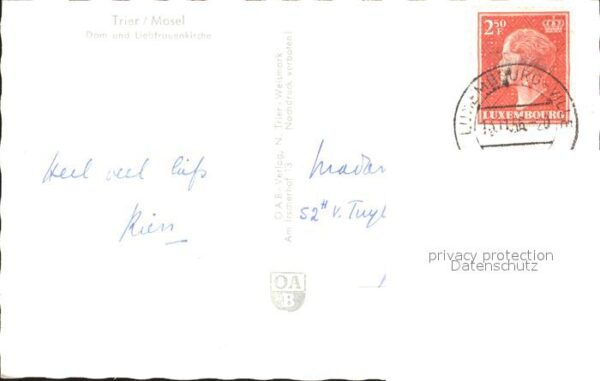 Trier / Mosel
Dom und Liebfrauenkirche
2.50
F
LUXEMBOURG
LUXEMBOURG-VILLE
O A B - Verlag, N. Trier - Weismark
Am Irscherhof 13 Nachdruck verboten!
Heel veel liefs
Rien
Madam
52 H v. Tuyl
OA
B
privacy protection
Datenschutz